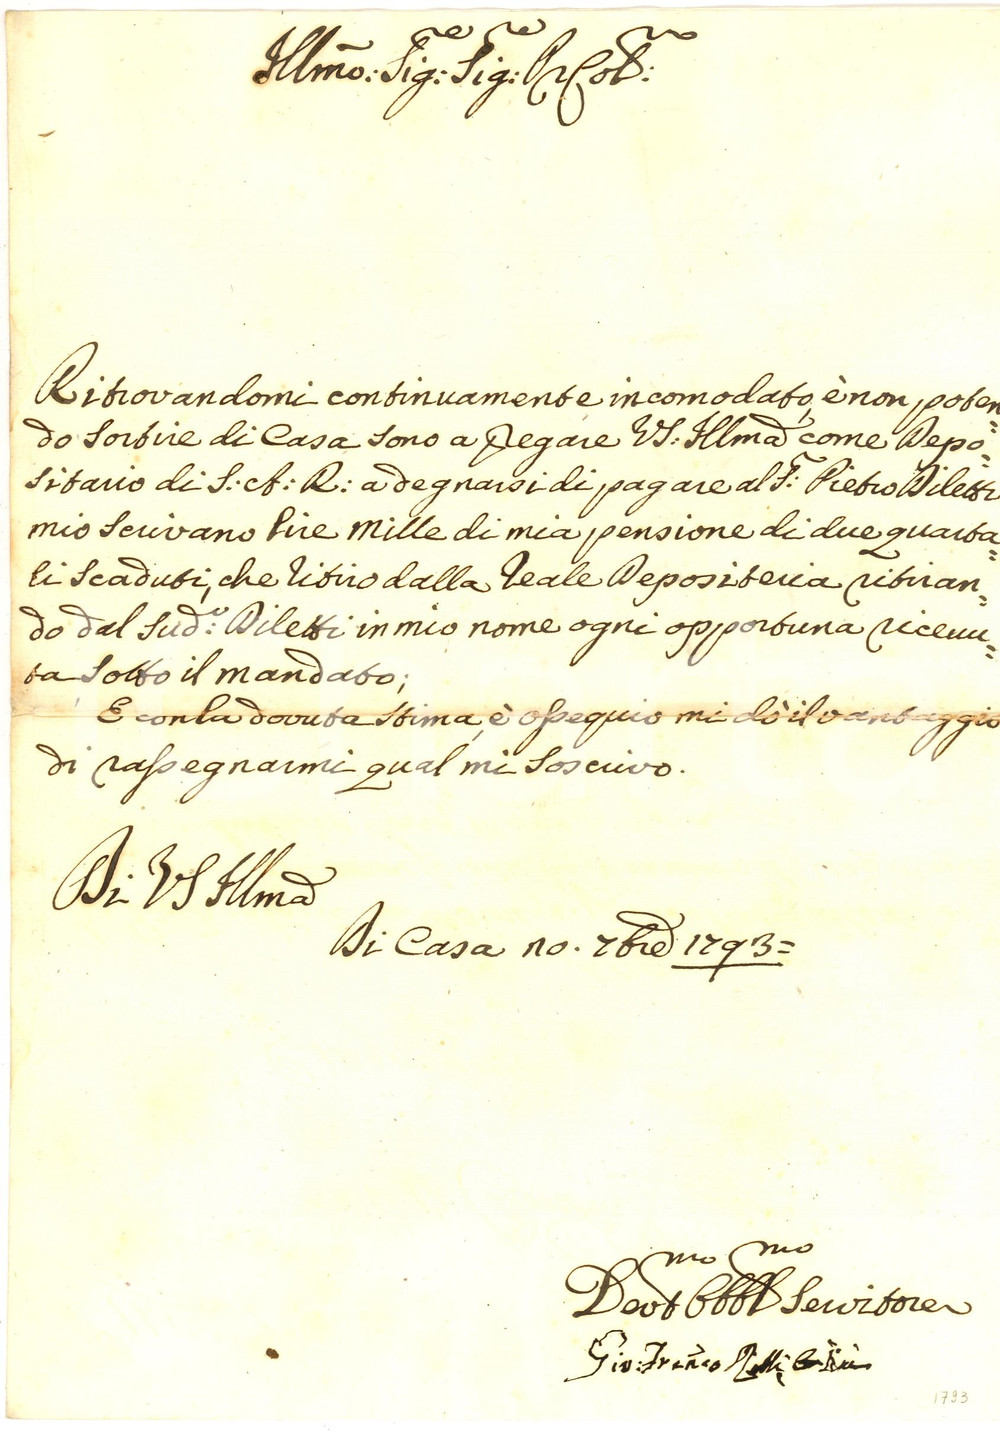 Illmo: Sig:re Sig:re Pr Col:
Ritrovandomi continuamente incomodato, è non poten=
do Sortire di Casa sono a pregare VS: Illma come Depo=
sitario di S: A: R: a degnarsi di pagare al S:r Pietro Diletti
mio Scrivano lire Mille di mia pensione di due quarta=
li Scaduti, che ritiro dalla Reale Depositeria ritiran=
do dal Sud:o Diletti in mio nome ogni opportuna ricevu=
ta sotto il mandato;
E con la dovuta Stima, è ossequio mi dò il vantaggio
di rassegnarmi qual mi Soscrivo.
Di VS Illma
Di Casa 10. 7bre 1793=
Devotmo Obblmo Servitore
Gio: Franco
1793